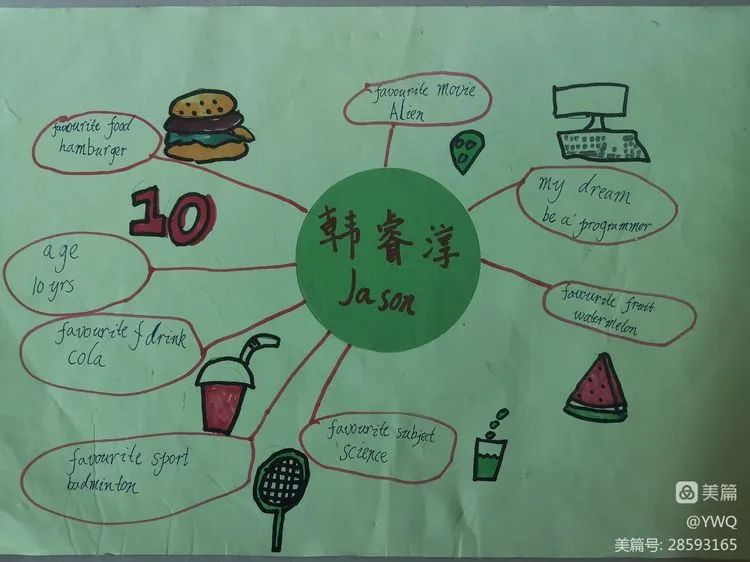 favourite movie
Alien
favourite food
hamburger
my dream
be a programmer
10
韩睿淳
Jason
age
10 yrs
favourite fruit
watermelon
favourite drink
cola
favourite subject
science
favourite sport
badminton
美篇
@YWQ
美篇号: 28593165